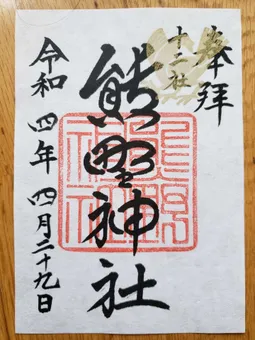 奉拝
十二社
熊野神社
令和四年四月二十九日